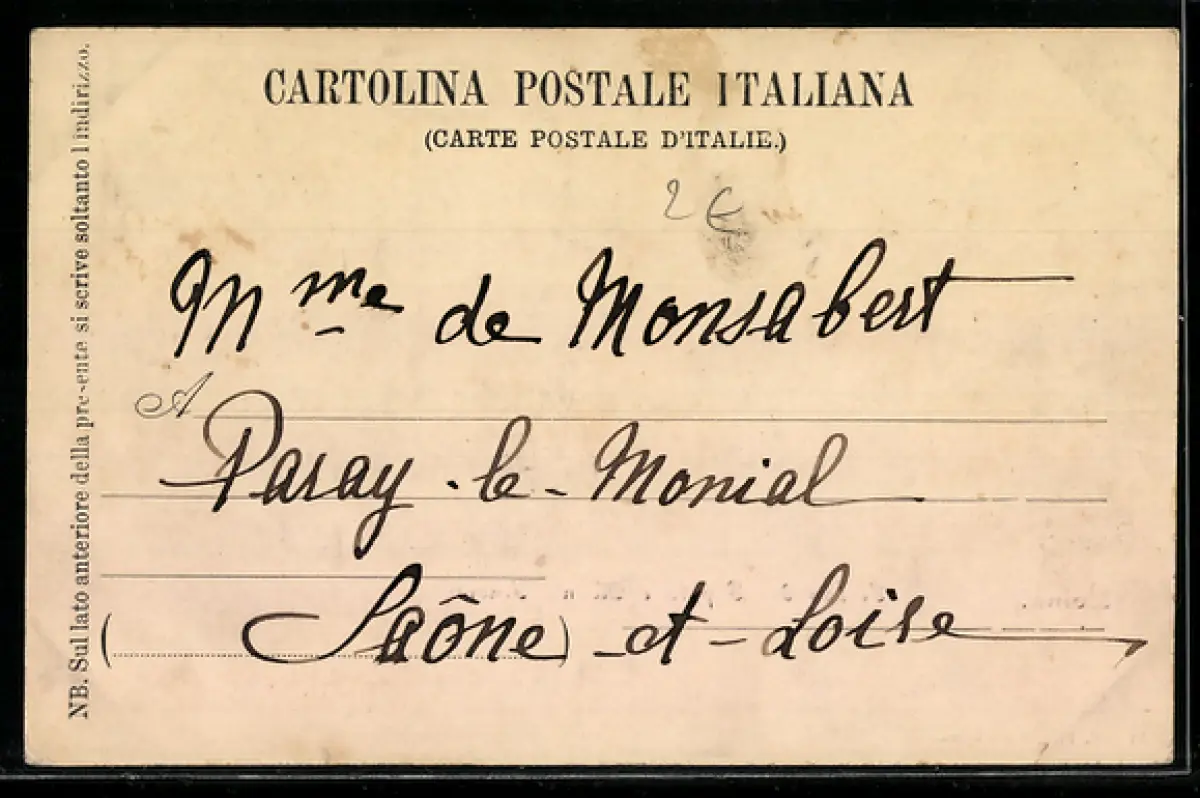 CARTOLINA POSTALE ITALIANA
(CARTE POSTALE D'ITALIE.)
2 €
Mme de Monsabert
A
Paray-le-Monial
(Saône)-et-Loire
NB. Sul lato anteriore della presente si scrive soltanto l'indirizzo.